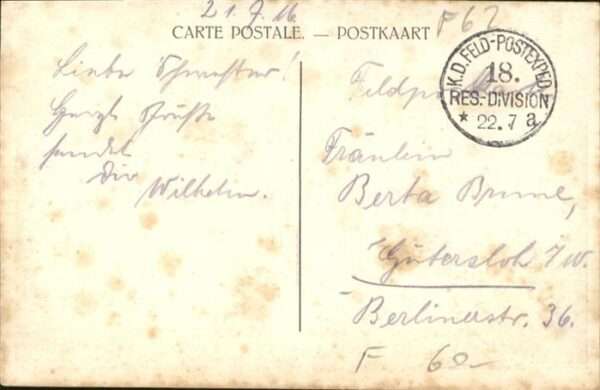 21.7.16
F 62
CARTE POSTALE. — POSTKAART
K.D. FELD-POSTEXPED.
18.
RES.-DIVISION
* 22.7 a
Liebe Schwester!
Herzl. Grüße
sendet
Dir
Wilhelm.
Fräulein
Berta Brune,
Gütersloh i/W.
Berlinerstr. 36.
F 60-